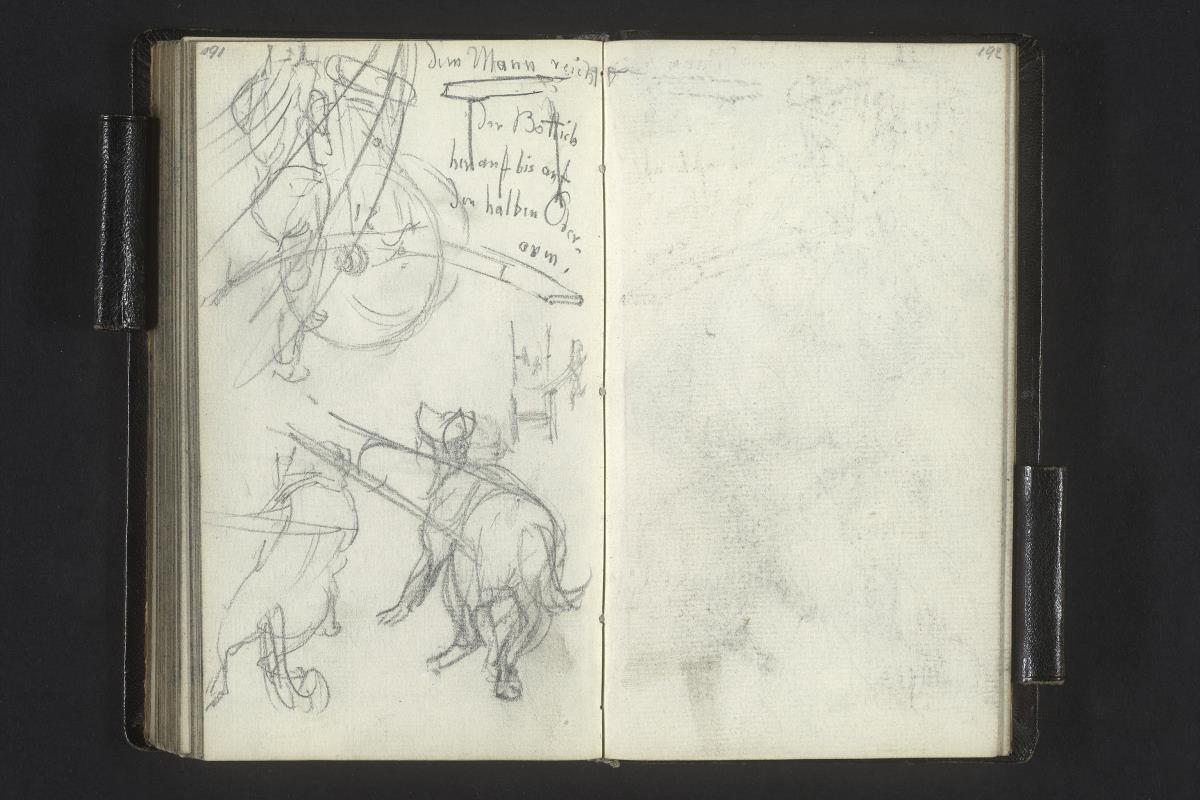 191
192
dem Mann reicht
der Bottich
herauf bis auf
den halben Ober-
arm.